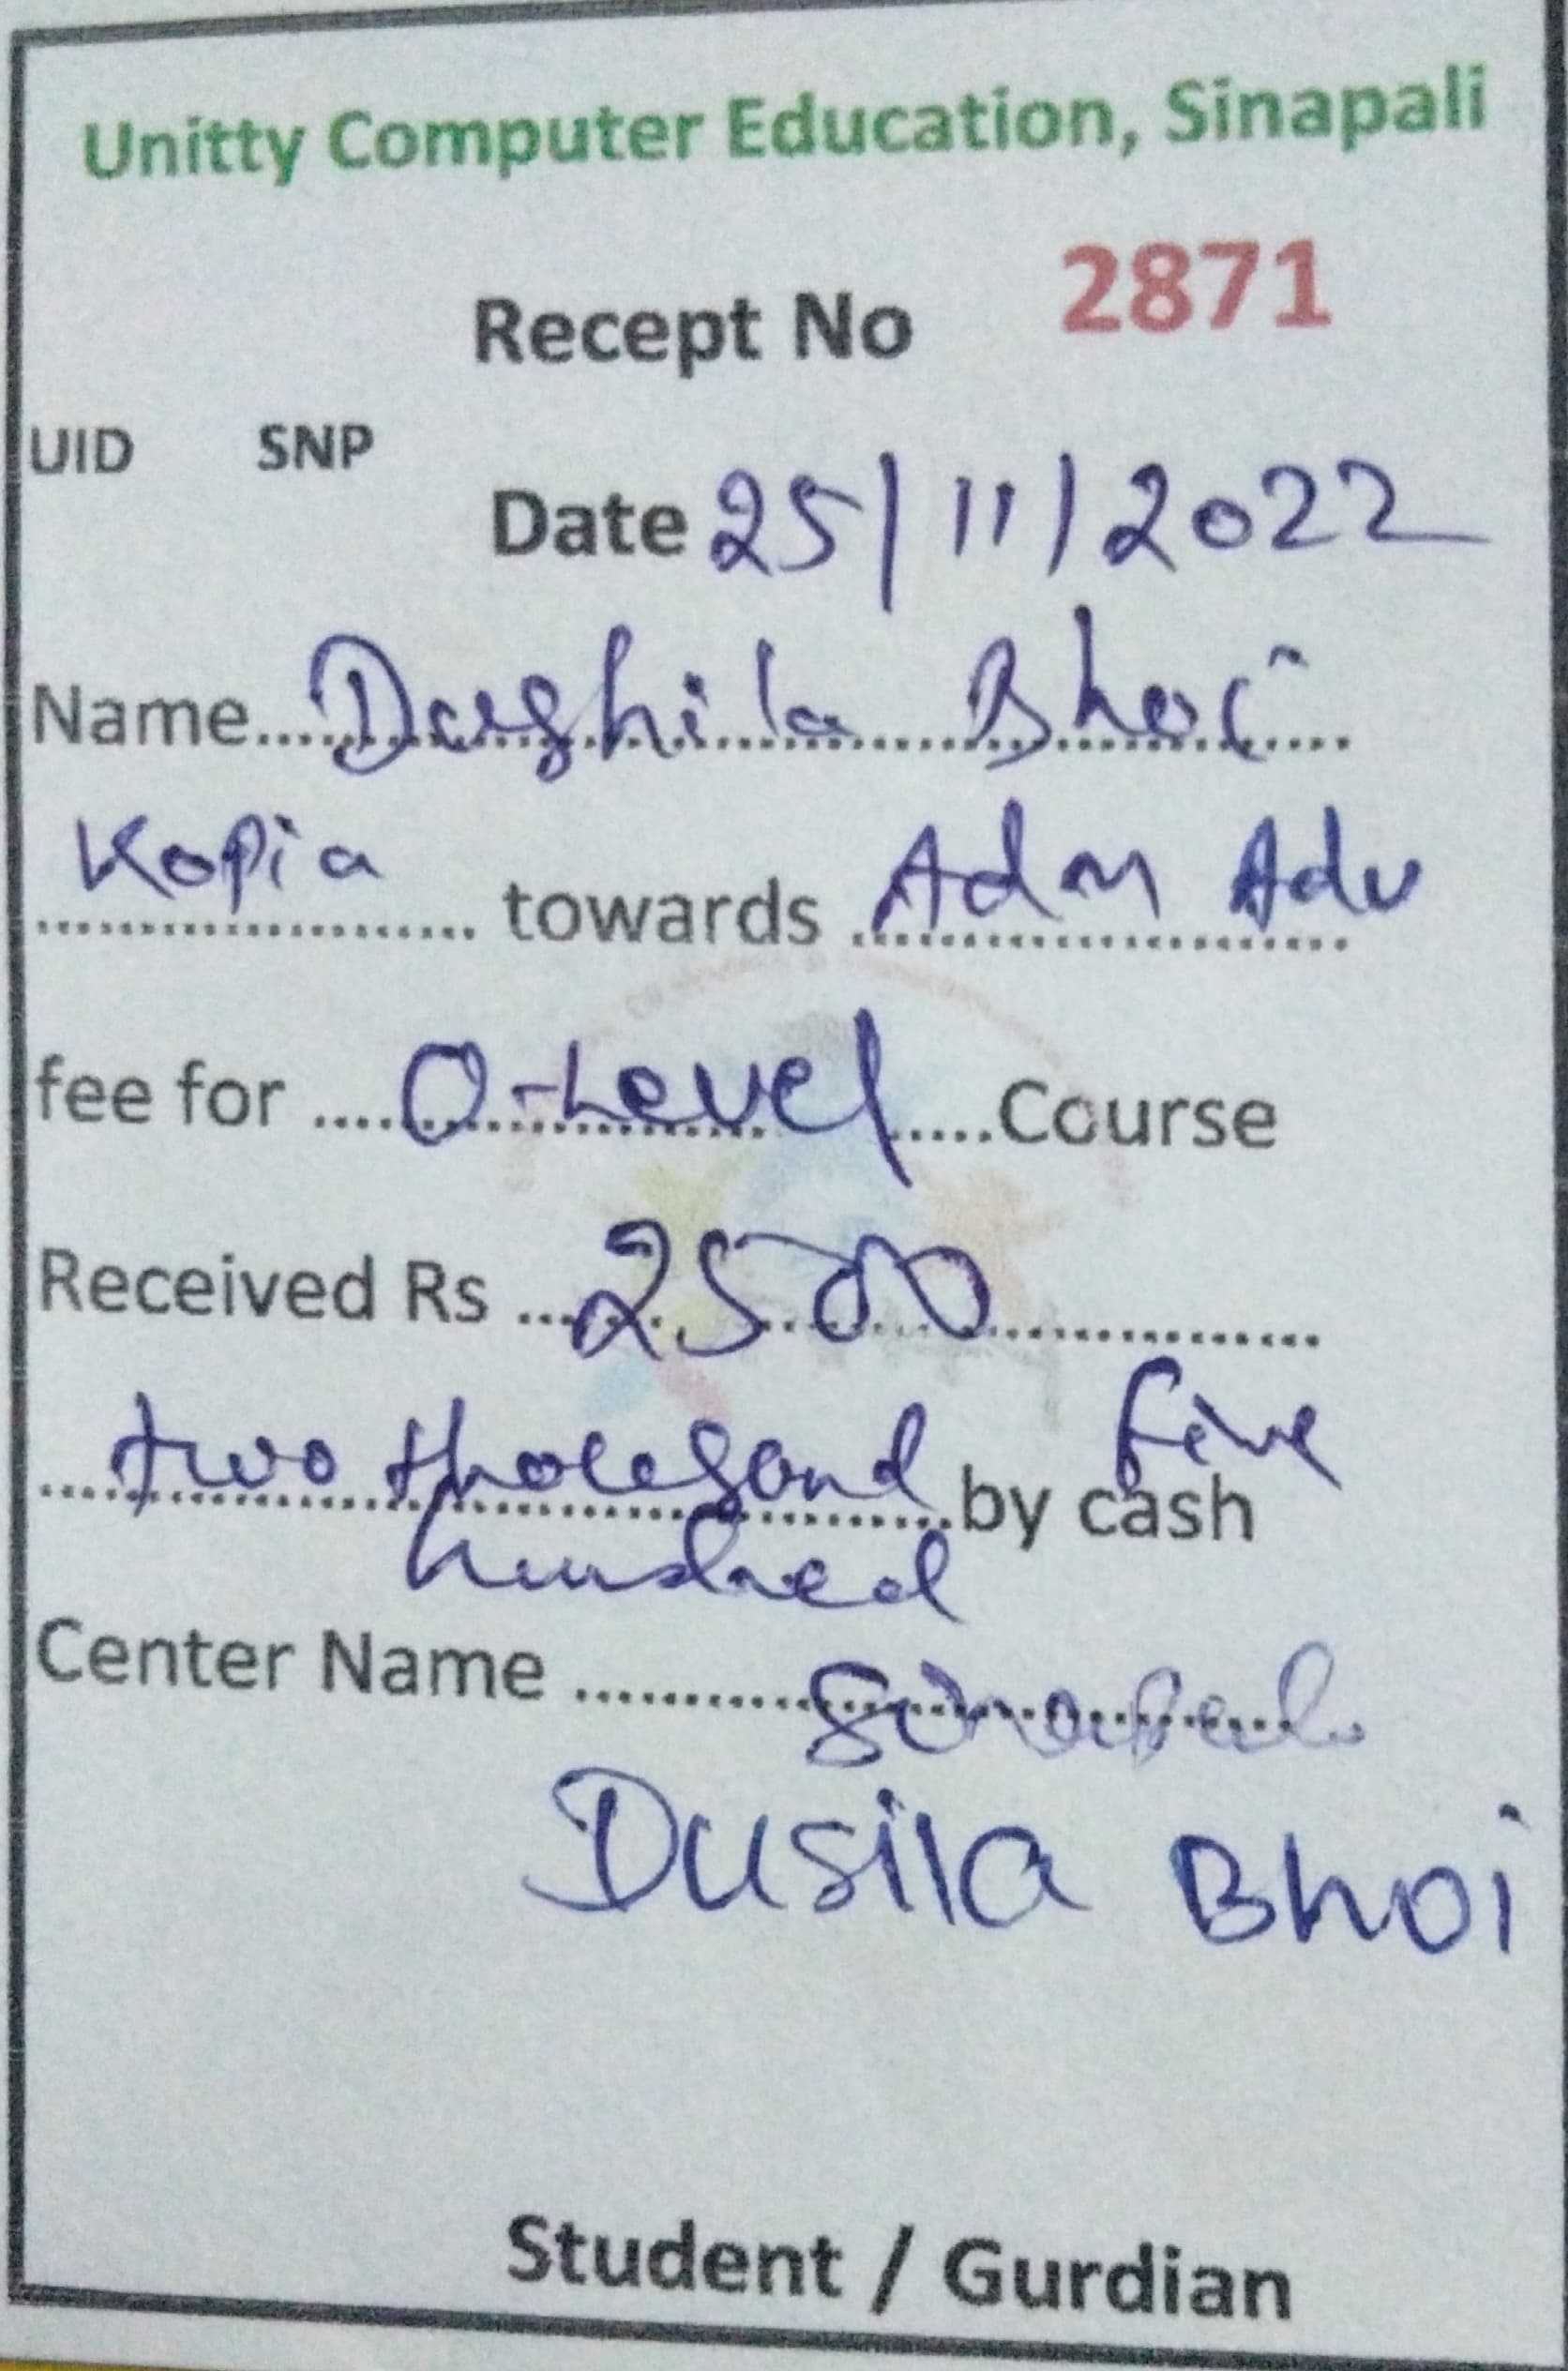 Unitty Computer Education, Sinapali
Recept No 2871
UID SNP
Date 25/11/2022
Name.... Dushila Bhoi
Kopia towards Adm Adv
fee for .... O-Level .....Course
Received Rs ... 2500
two thousand by cash five
hundred
Center Name Sinapali
Dusila Bhoi
Student / Gurdian